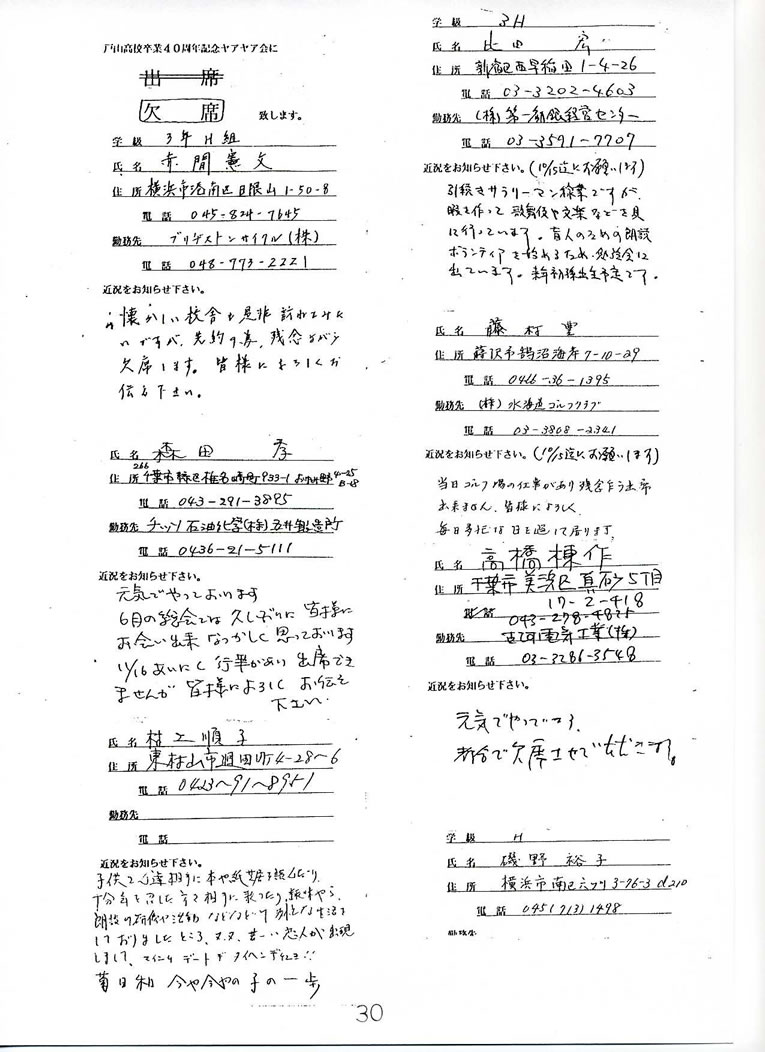 戸山高校卒業40周年記念ヤアヤア会に
出席
欠席 致します。
学級 3年H組
氏名 赤間憲文
住所 横浜市港南区日限山1-50-8
電話 045-824-7645
勤務先 ブリヂストンサイクル(株)
電話 048-773-2221
近況をお知らせ下さい。
懐かしい校舎も是非訪れてみた
いですが、先約の為、残念ながら
欠席します。皆様によろしくお
伝え下さい。
氏名 森田 孝
266
住所 千葉市緑区椎名崎町933-1
電話 043-291-3895
勤務先 チッソ石油化学(株)五井製造所
電話 0436-21-5111
近況をお知らせ下さい。
元気でやっております
6月の総会では久しぶりに皆様に
お会い出来なつかしく思っております
11/16あいにく行事があり出席でき
ませんが皆様によろしくお伝え
下さい
氏名 村上順子
住所 東村山市廻田町4-28~6
電話 0423~91~8951
勤務先
電話
近況をお知らせ下さい。
子供で
朗読の研修や活動などなど
しておりましたところ、
菊日和 今や今やの子の一歩
学級 3H
氏名 比田 宏
住所 新宿区西早稲田1-4-26
電話 03-3202-4603
勤務先 (株)第一勧銀経営センター
電話 03-3591-7707
近況をお知らせ下さい。(10/15迄にお願いします)
引続きサラリーマン稼業ですが、
暇を作って歌舞伎や文楽などを見
に行っています。盲人のための朗読
ボランティアを始めるため、勉強会に
出ています。来年初孫出生予定です。
氏名 藤村 豊
住所 藤沢市鵠沼海岸7-10-29
電話 0466-36-1395
勤務先 (株)水海道ゴルフクラブ
電話 03-3808-2341
近況をお知らせ下さい。(10/15迄にお願いします)
当日ゴルフ場の仕事があり残念乍ら出席
出来ません。皆様によろしく
毎日多忙な日を送って居ります。
氏名 高橋棟作
住所 千葉市美浜区真砂5丁目
17-2-418
電話 043-278-4825
勤務先 古河電気工業(株)
電話 03-3286-3548
近況をお知らせ下さい。
元気でやっています。
都合で欠席させていただきます。
学級 H
氏名 磯野裕子
住所 横浜市南区六ツ川3-76-3 d210
電話 045(713)1498
勤務先
30